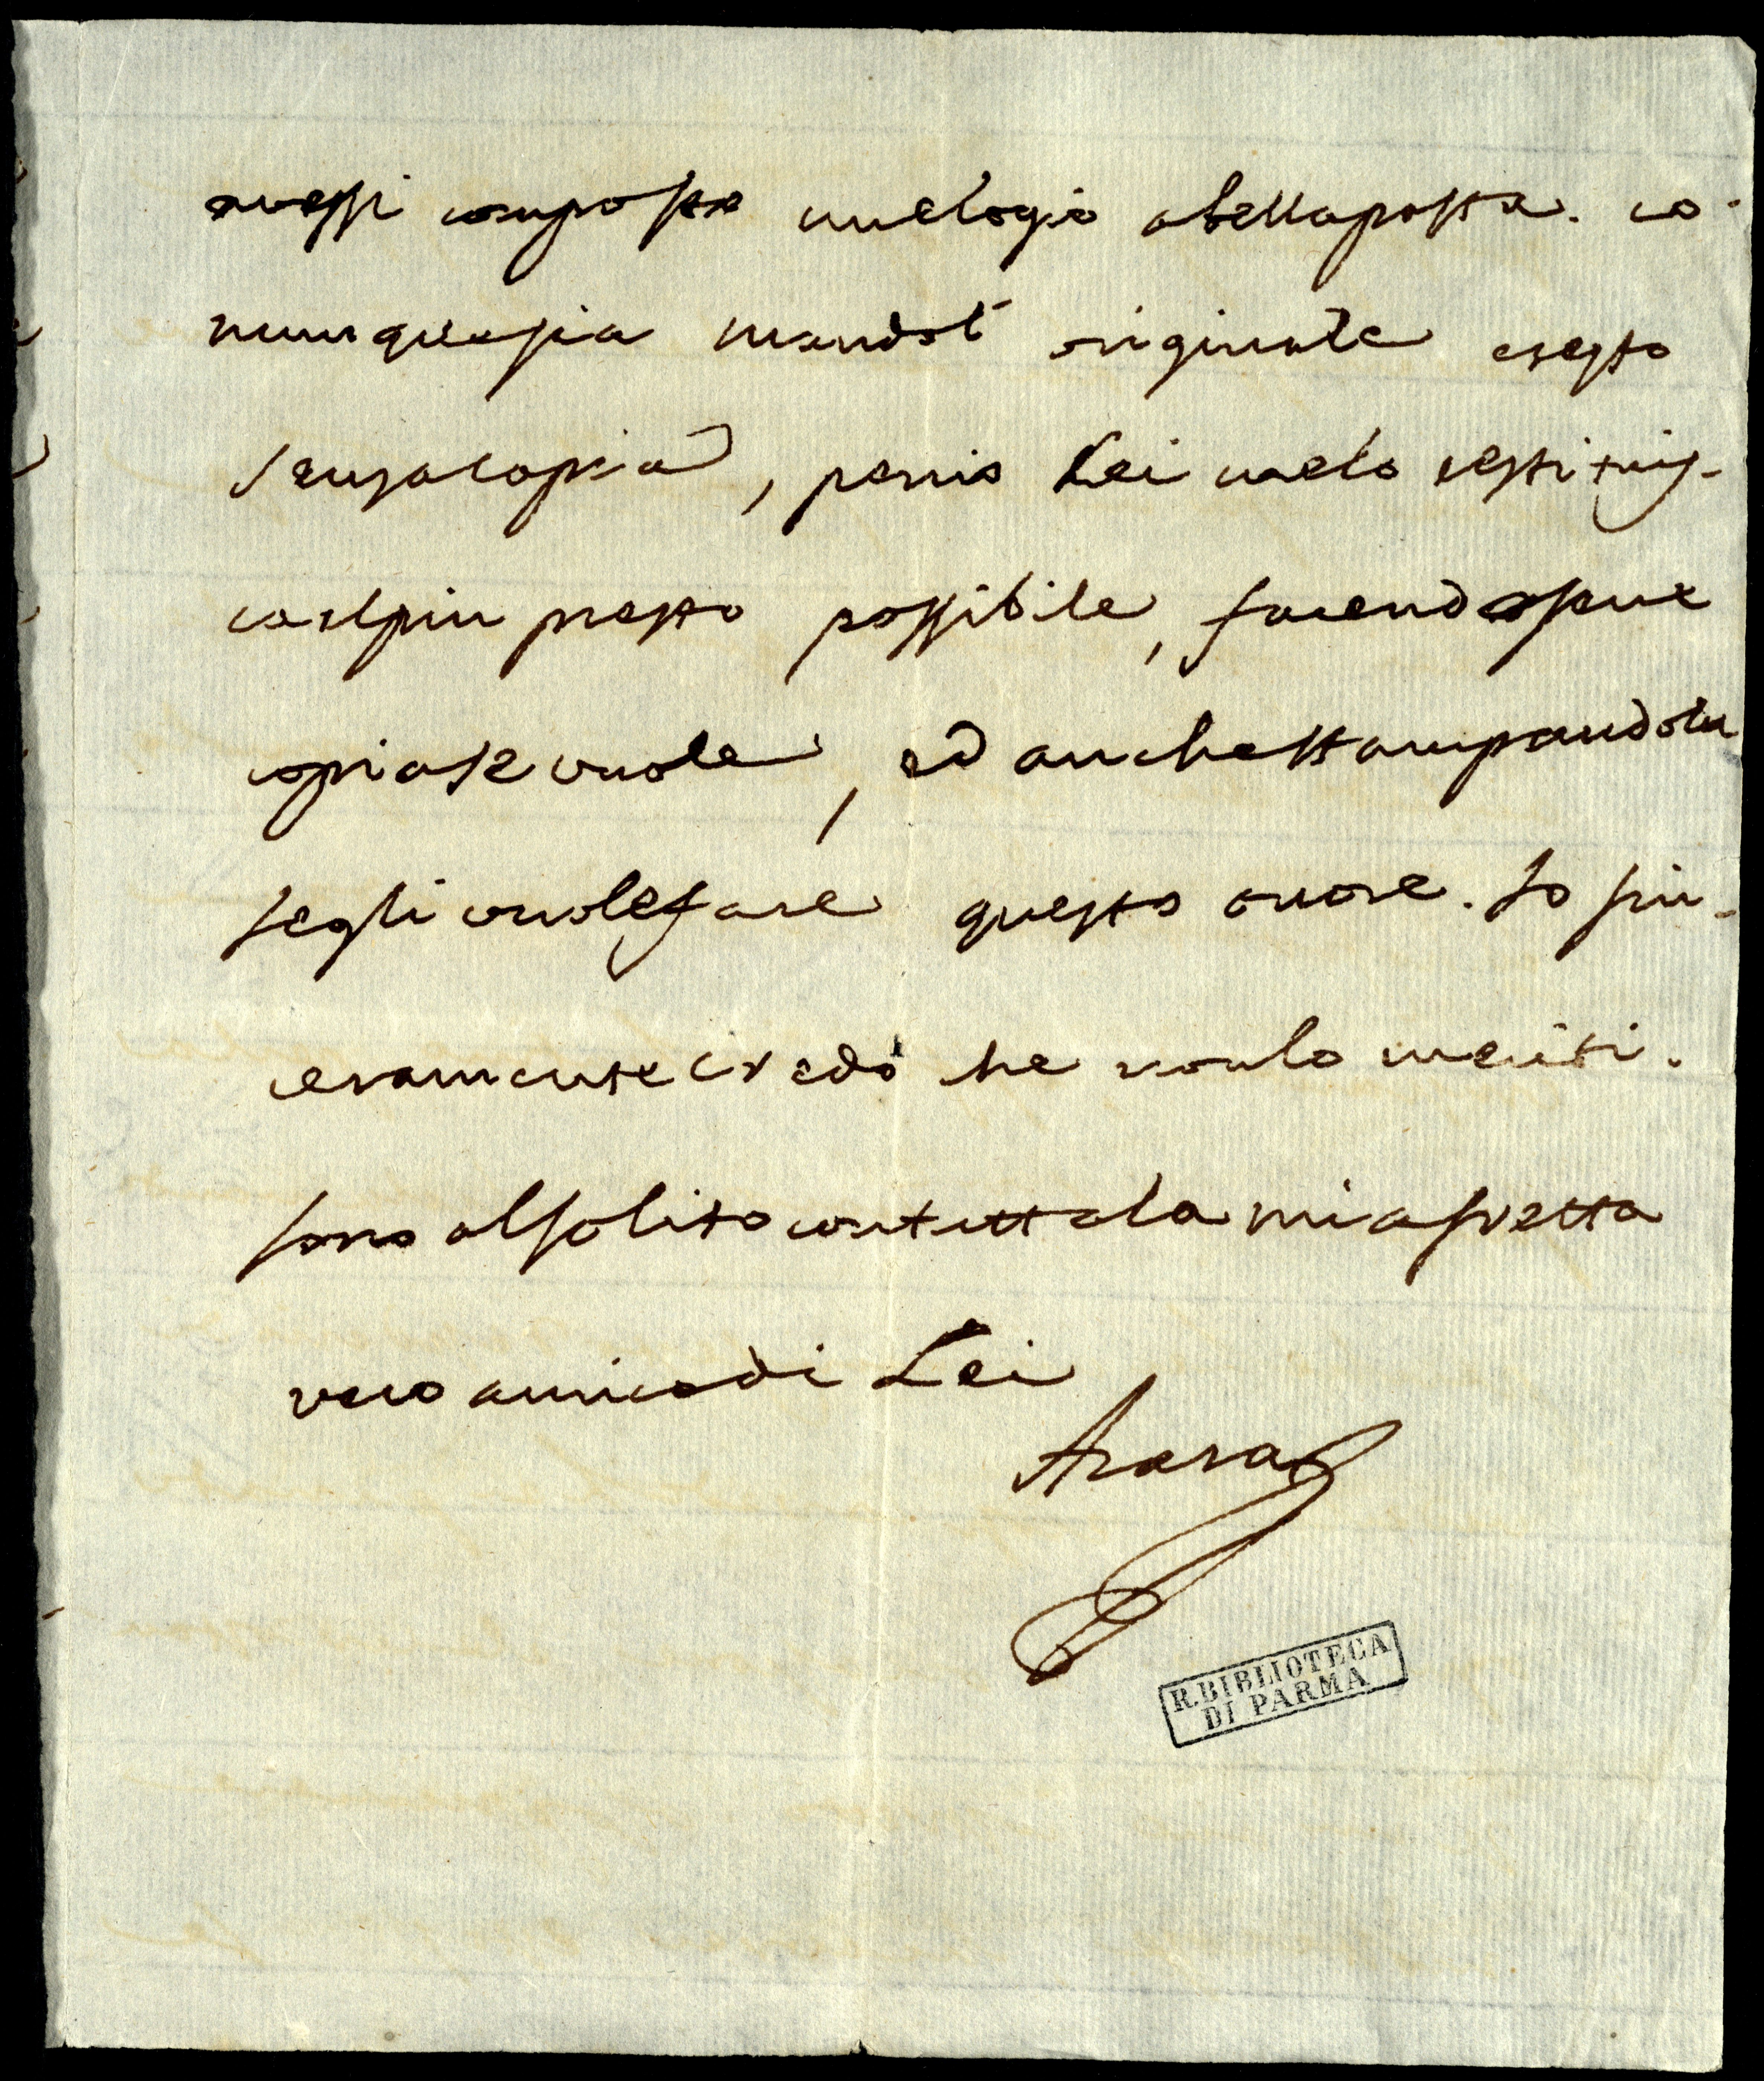 avessi composto un elogio a bella posta. co-
munque sia mando l'originale e resto
senza copia, perciò Lei me lo restituis-
ca il più presto possibile, facendosene
copia se vuole, ed anche stampandola
se gli vuole fare questo onore. Io sin-
ceramente credo che non lo meriti.
sono al solito con tutta la mia fretta
vero amico di Lei
Azara
R. BIBLIOTECA
DI PARMA